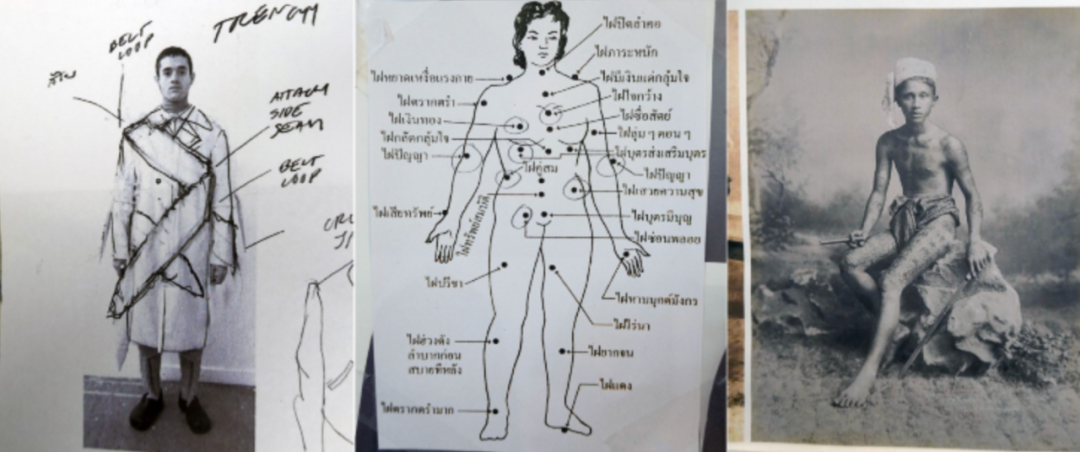 TRENCH
BELT
LOOP
ATTACH
SIDE
SEAM
BELT
LOOP
ไฝปิดลำคอ
ไฝภาระหนัก
ไฝหยาดเหงื่อแรงกาย
ไฝมีเงินแต่กลุ้มใจ
ไฝตรากตรำ
ไฝใจกว้าง
ไฝเงินทอง
ไฝซื่อสัตย์
ไฝกลัดกลุ้มใจ
ไฝลุ่ม ๆ ดอน ๆ
ไฝปัญญา
ไฝบุตรส่งเสริมบุตร
ไฝคู่สม
ไฝปัญญา
ไฝเสวยความสุข
ไฝเสียทรัพย์
ไฝทรัพย์สมบัติ
ไฝบุตรมีบุญ
ไฝซ่อนพลอย
ไฝปรีชา
ไฝหาบมุกต์มังกร
ไฝไร่นา
ไฝฮวงดัง
ลำบากก่อน
สบายทีหลัง
ไฝยากจน
ไฝแดง
ไฝตรากตรำมาก